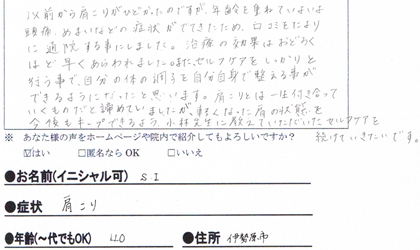 以前から肩こりがひどかったのですが、年齢を重ねていよいよ
頭痛、めまいなどの症状がでてきたため、口コミをたより
に通院する事にしました。治療の効果はおどろく
ほど早くあらわれました。また、セルフケアをしっかりと
行う事で、自分の体の調子を自分自身で整える事が
できるようになったと思います。肩こりとは一生付き合って
いくものだと諦めていましたが、軽くなった肩の状態を
今後もキープできるよう、小林先生に教えていただいたセルフケアを
続けていきたいです。
※ あなた様の声をホームページや院内で紹介してもよろしいですか?
☑はい □匿名ならOK □いいえ
●お名前(イニシャル可) S.I
●症状 肩こり
●年齢(〜代でもOK) 40 ●住所 伊勢原市